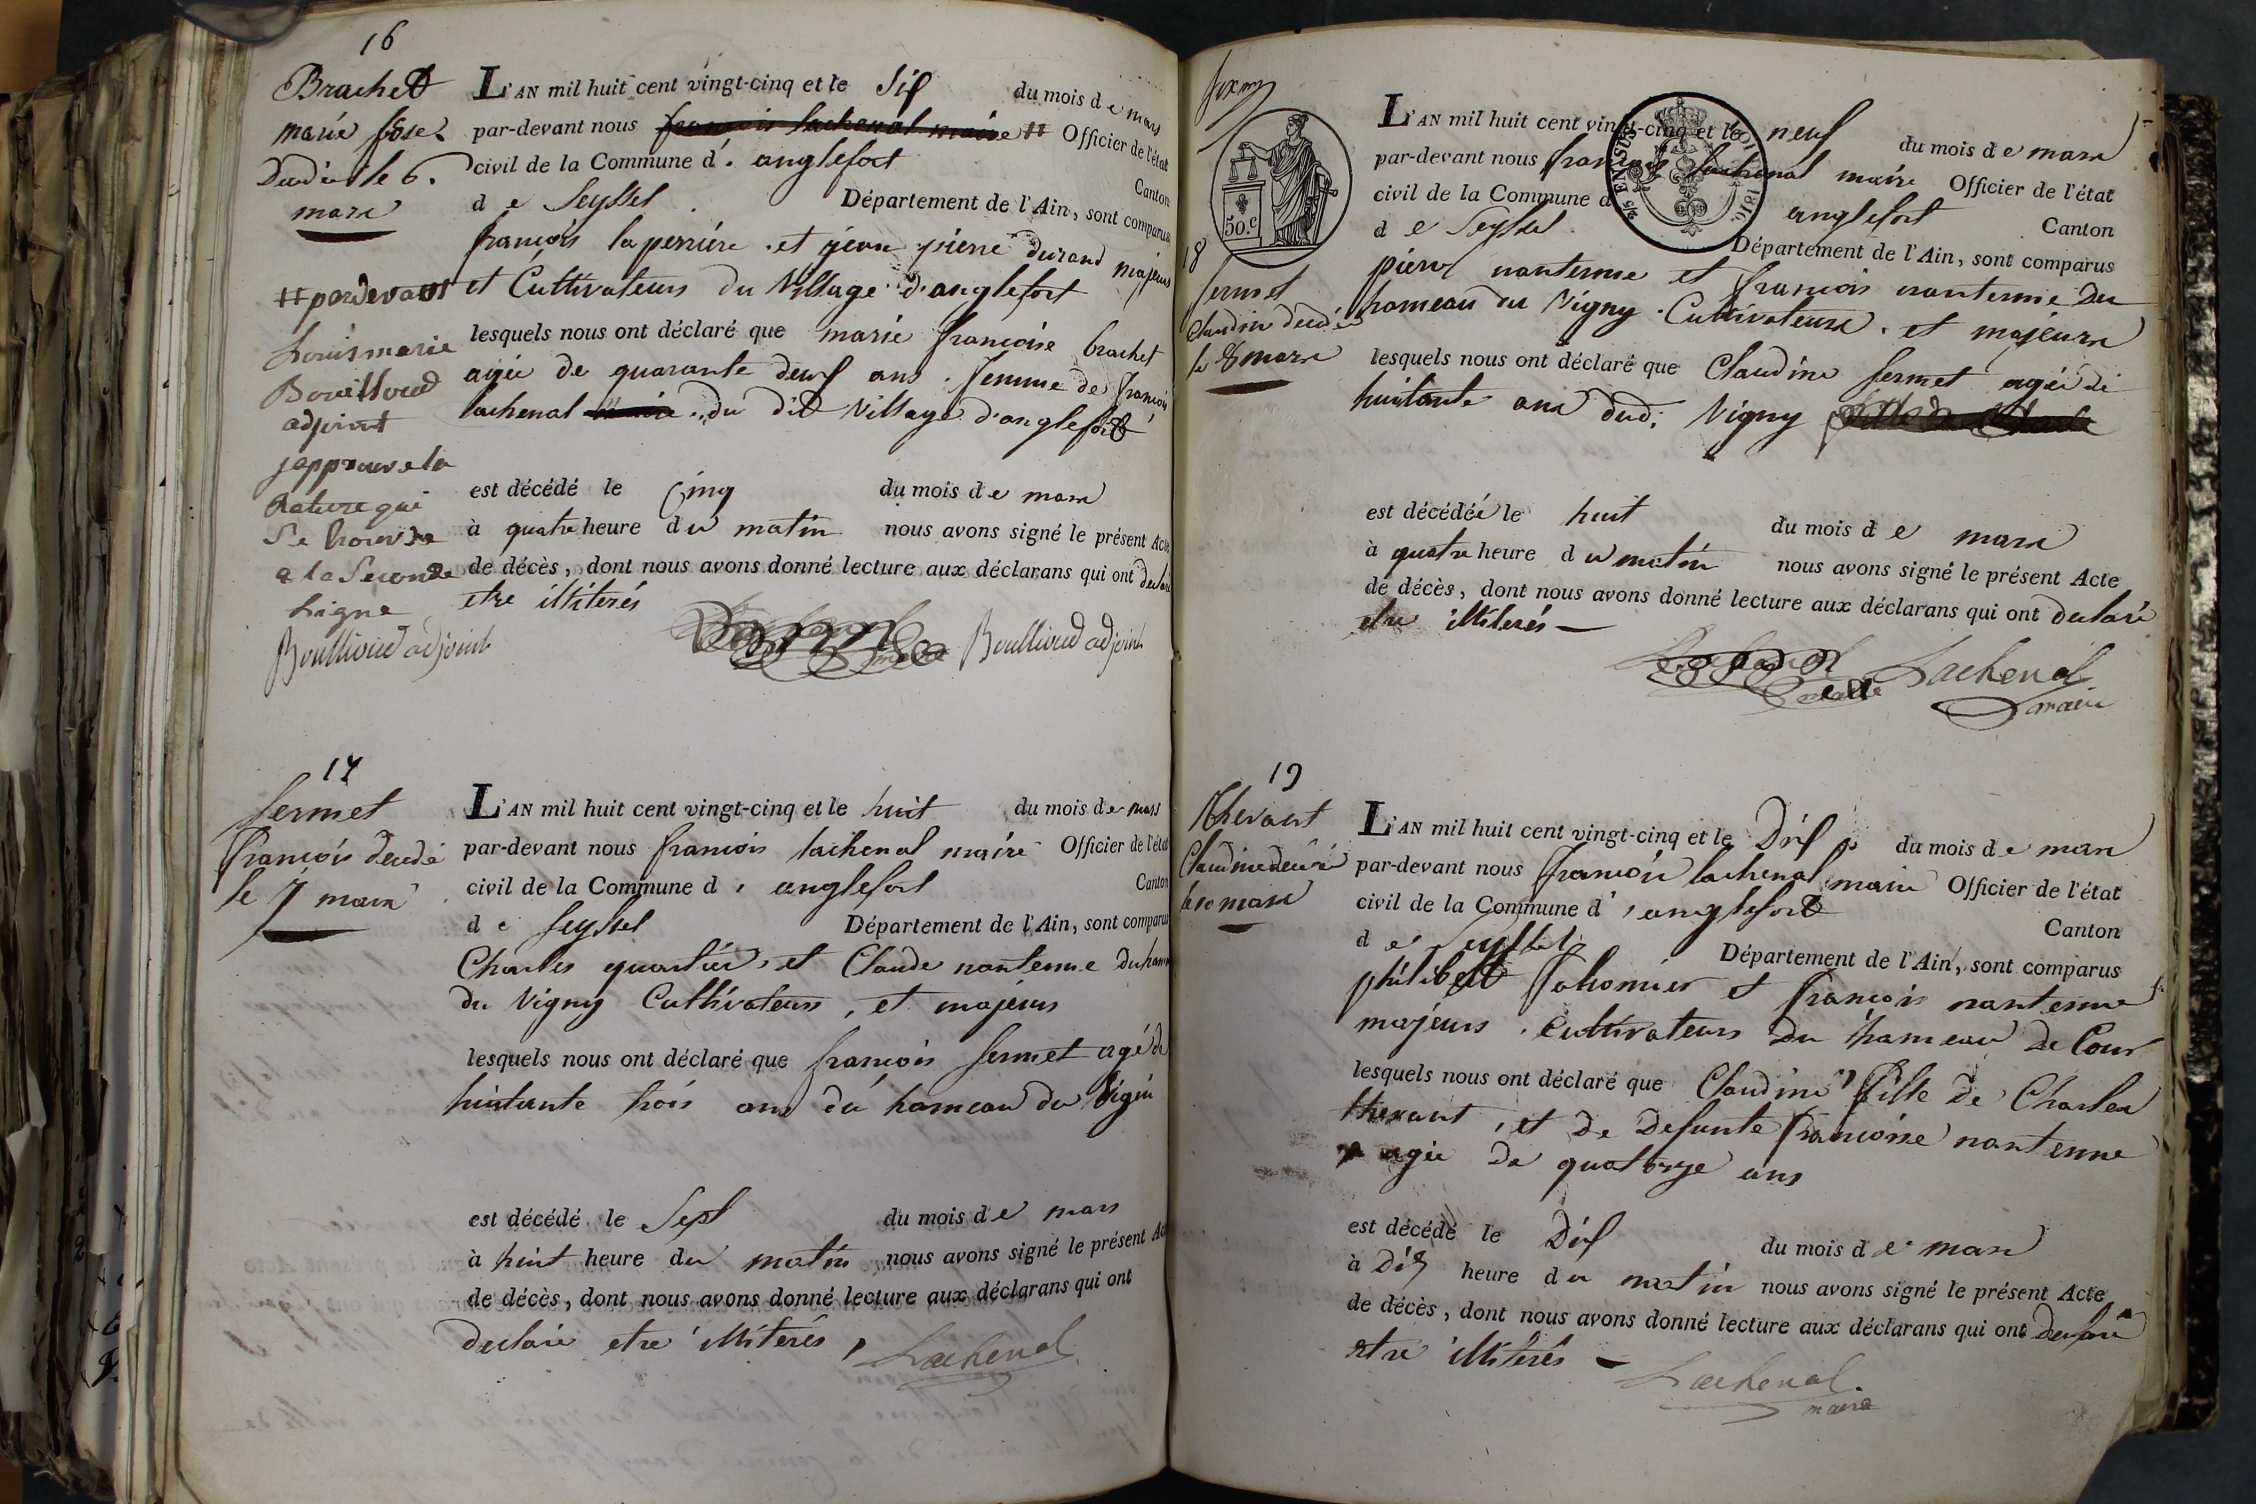 16
Brachet
marie fose
Decédée le 6.
mars
L'AN mil huit cent vingt-cinq et le Six du mois de mars
par-devant nous francois lachenal maire # Officier de l'état
civil de la Commune d'. anglefort Canton
de Seyssel Département de l'Ain, sont comparus
francois laperriere . et jean pierre durand majeurs
et Cultivateurs du Village d'anglefort
lesquels nous ont déclaré que marie francoise brachet
agée de quarante deux ans . femme de francois
lachenal maire . du dit Village d'anglefort
# pardevant
Louis marie
Bouilloud
adjoint
japprouve la
rature qui
Se trouve
a la Seconde
Ligne
Boullioud adjoint
est décédé le Cinq du mois de mars
à quatre heure du matin nous avons signé le présent Acte
de décès, dont nous avons donné lecture aux déclarans qui ont declaré
etre illiterés
maire Boullioud adjoint
17
fermet
francois decedé
le 7 mars
L'AN mil huit cent vingt-cinq et le huit du mois de mars
par-devant nous francois lachenal maire Officier de l'état
civil de la Commune d' anglefort Canton
de Seyssel Département de l'Ain, sont comparus
Charles quartier, et Claude nanterme du hameau
du Vigny Cultivateurs, et majeurs
lesquels nous ont déclaré que francois fermet agé de
huitante trois ans du hameau du Vigny
est décédé le Sept du mois de mars
à huit heure du matin nous avons signé le présent Acte
de décès, dont nous avons donné lecture aux déclarans qui ont
declaré etre illiterés,
Lachenal
50.c
EN SUS
1816
18
fermet
Claudine decedée
le 8 mars
L'AN mil huit cent vingt-cinq et le neuf du mois de mars
par-devant nous francois lachenal maire Officier de l'état
civil de la Commune d anglefort Canton
de Seyssel Département de l'Ain, sont comparus
pierre nanterme et francois nanterme du
hameau de Vigny . Cultivateurs . et majeurs
lesquels nous ont déclaré que Claudine fermet agée de
huitante ans dud: Vigny
est décédée le huit du mois de mars
à quatre heure du matin nous avons signé le présent Acte
de décès, dont nous avons donné lecture aux déclarans qui ont declaré
etre illiterés —
Lachenal
maire
19
thevant
Claudine decedé
le 10 mars
L'AN mil huit cent vingt-cinq et le Dix du mois de mars
par-devant nous francois lachenal maire Officier de l'état
civil de la Commune d', anglefort Canton
de Seyssel Département de l'Ain, sont comparus
philibert et francois nanterme
majeurs . Cultivateurs du hameau de Cour
lesquels nous ont déclaré que Claudine fille de Charles
thevant, et de Defunte francoise nanterme
agée de quatorze ans
est décédé le Dix du mois de mars
à Dix heure du matin nous avons signé le présent Acte
de décès, dont nous avons donné lecture aux déclarans qui ont declaré
etre illiterés —
Lachenal
maire